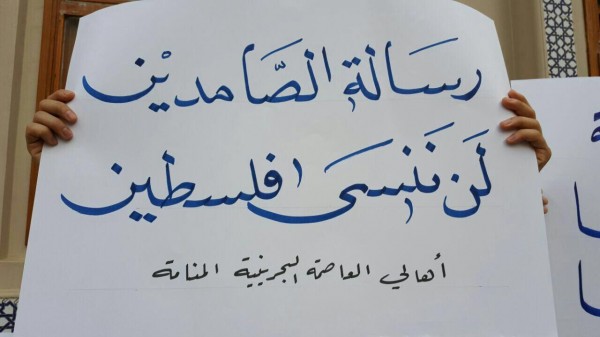 رسالة الصَّامديْن
لَن نَنسى فلسطين
أهالي العاصمة البحرينية المنامة